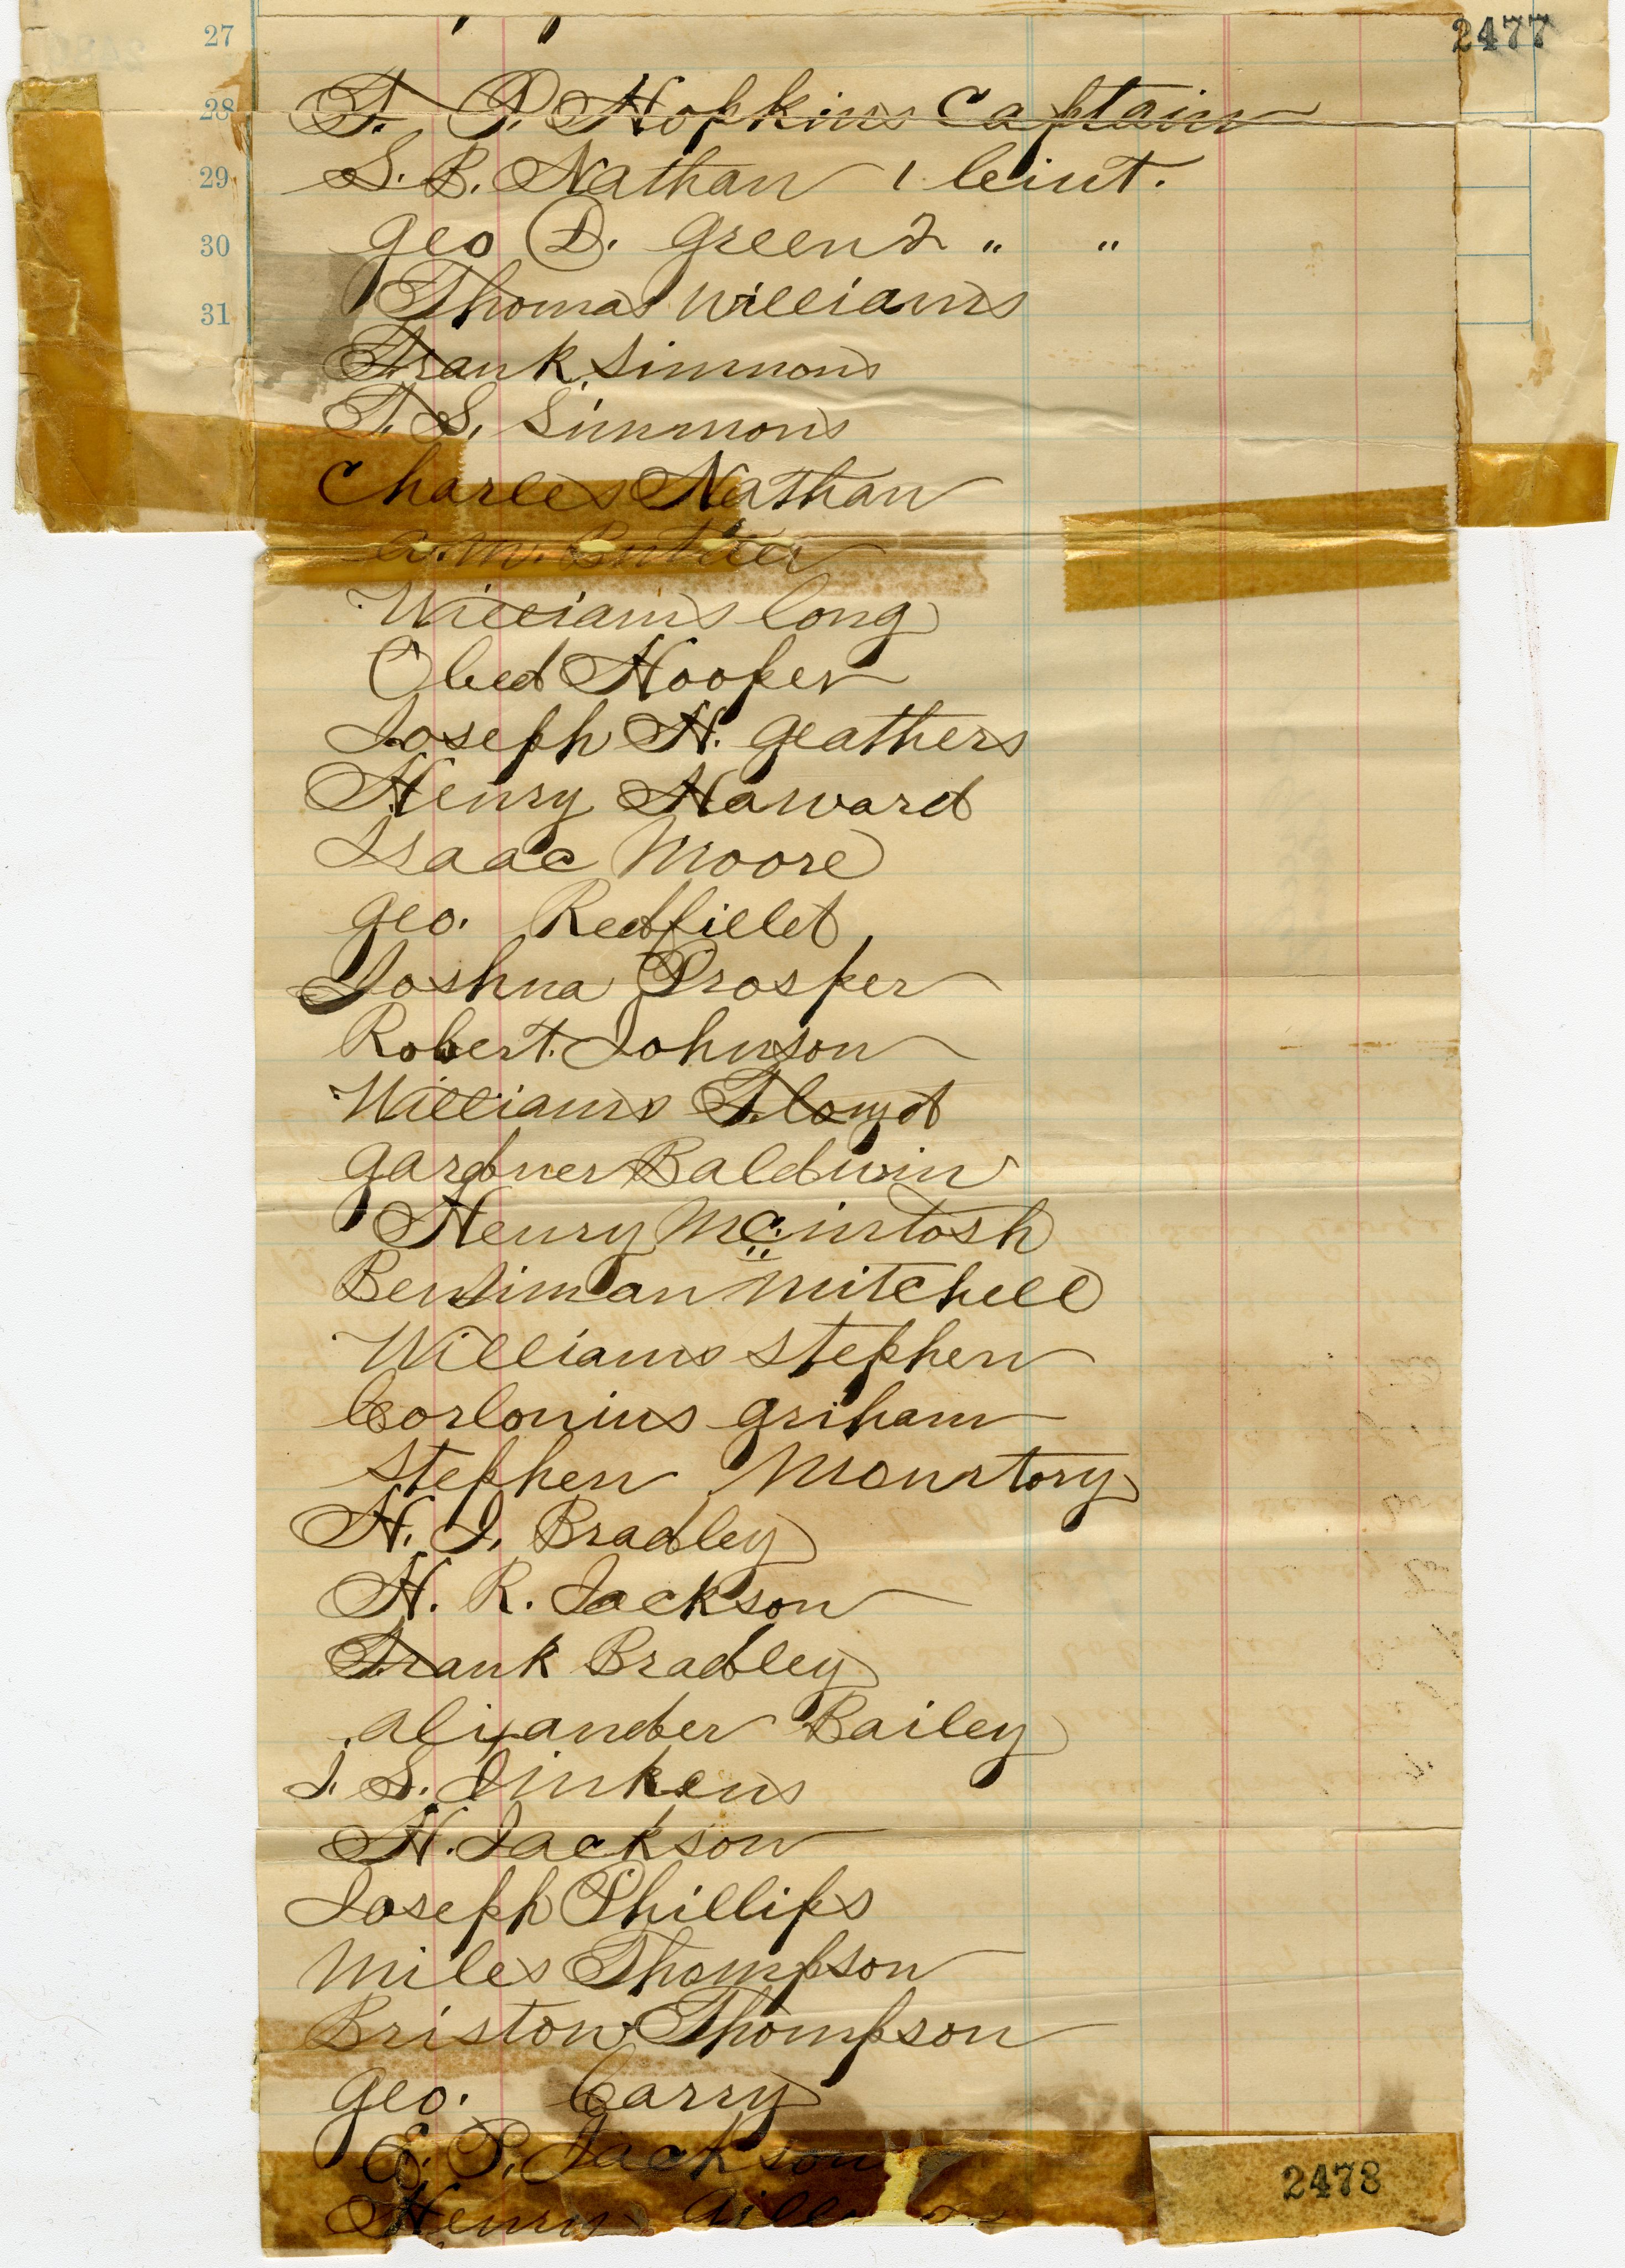 27 2477
28 F. P. Hopkins Captain
29 S. B. Nathan 1 leiut.
30 Geo D. Green 2 " "
31 Thomas Williams
Frank Simmons
T. S. Simmons
Charles Nathan
A. M. Butler
Williams long
Obed Hooper
Joseph H. Geathers
Henry Haward
Isaac Moore
Geo. Redfield
Joshua Prosper
Robert Johnson
Williams Floyd
Gardner Baldwin
Henry Mc.intosh
Benjiman Mitchell
Williams Stephen
Corlonius Griham
Stephen Mountory
H. J. Bradley
H. R. Jackson
Frank Bradley
Alixander Bailey
J. S. Jinkens
H. Jackson
Joseph Phillips
Miles Thompson
Briston Thompson
Geo. Carry
E. P. Jackson
Henry
2478